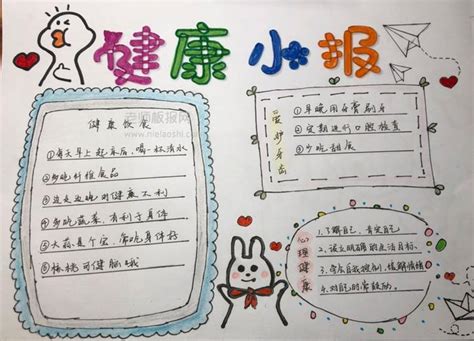 健康小报
健康饮食
①每天早上起床后,喝一杯清水
②多吃纤维食品
③边走边吃对健康不利
④多吃蔬菜,有利于身体
⑤大蒜是个宝,常吃身体好
⑥核桃可健脑
爱护牙齿
①早晚用牙膏刷牙
②定期进行口腔检查
③少吃甜食
心理健康
1.了解自己,肯定自己
2.设立明确的生活目标
3.学会自我控制,缓解情绪
4.对自己的常鼓励
老师板报网
www.nielaoshi.com